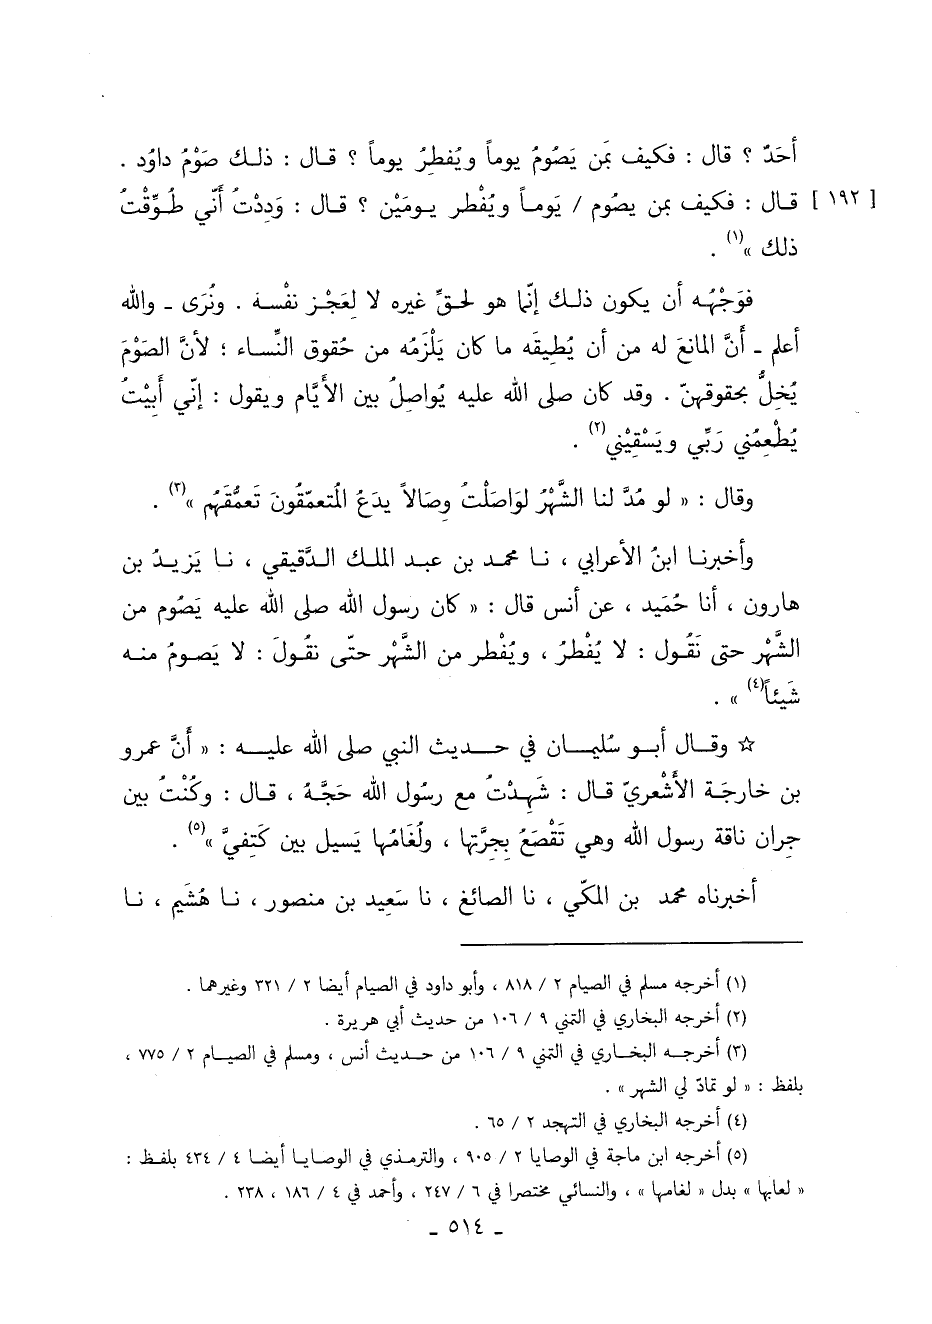 أحَدٌ ؟ قال : فكيف بمَن يَصُومُ يوماً ويُفطِرُ يوماً ؟ قـال : ذلـك صَوْمُ داوُد .
[ ١٩٢ ] قـال : فكيف بمن يصُوم / يَومـاً ويُفْطر يـومَيْن ؟ قال : وَدِدْتُ أَنّي طُـوِّقْتُ
ذلك »(١) .
فوَجْهُـه أن يكون ذلـك إنّما هو لحقِّ غيره لا لِعَجْـز نفْسـه . ونُرَى ـ والله
أعلم ـ أَنَّ المانعَ له من أن يُطيقَه ما كان يَلْزَمُه من حُقوق النِّساء ؛ لأنَّ الصَوْمَ
يُخِلُّ بحقوقهنّ . وقد كان صلى الله عليه يُواصِلُ بين الأيَّام ويقول : إنّي أَبِيْتُ
يُطْعِمُني رَبِّي ويَسْقِيْني(٢) .
وقال : « لو مُدَّ لنا الشَّهْرُ لوَاصَلْتُ وِصَالاً يدَعُ المُتعمّقُونَ تَعمُّقَهُم »(٣) .
وأخبرنـا ابنُ الأعرابي ، نـا محمـد بن عبـد الملـك الـدَّقيقي ، نـا يَزيـدُ بن
هارون ، أنا حُمَيد ، عن أنس قال : « كان رسول الله صلى الله عليه يَصُوم من
الشَّهْر حتى نَقُـول : لا يُفْطرُ ، ويُفْطر من الشَّهْر حتّى نقُـولَ : لا يَصـومُ منـه
شَيئاً(٤) » .
☆ وقـال أبـو سُليمان في حـديث النبي صلى الله عليـه : « أَنَّ عمرو
بن خارجَـة الأَشْعريّ قال : شَهِدْتُ مع رسُول الله حَجَّةً ، قال : وكُنْتُ بين
جِران ناقة رسول الله وهي تَقْصَعُ بِجِرَّتِها ، ولُغَامُها يَسيل بين كَتِفيَّ »(٥) .
أخبرناه محمد بن المكّي ، نا الصائغ ، نا سَعِيد بن منصور ، نـا هُشَيم ، نـا
(١) أخرجه مسلم في الصيام ٢ / ٨١٨ ، وأبو داود في الصيام أيضا ٢ / ٣٢١ وغيرهما .
(٢) أخرجه البخاري في التمني ٩ / ١٠٦ من حديث أبي هريرة .
(٣) أخرجـه البخـاري في التمني ٩ / ١٠٦ من حـديث أنس ، ومسلم في الصيـام ٢ / ٧٧٥ ،
بلفظ : « لو تمادّ لي الشهر » .
(٤) أخرجه البخاري في التهجد ٢ / ٦٥ .
(٥) أخرجه ابن ماجة في الوصايا ٢ / ٩٠٥ ، والترمذي في الوصايـا أيضـا ٤ / ٤٣٤ بلفـظ :
« لعابها » بدل « لغامها » ، والنسائي مختصرا في ٦ / ٢٤٧ ، وأحمد في ٤ / ١٨٦ ، ٢٣٨ .
ـ ٥١٤ ـ